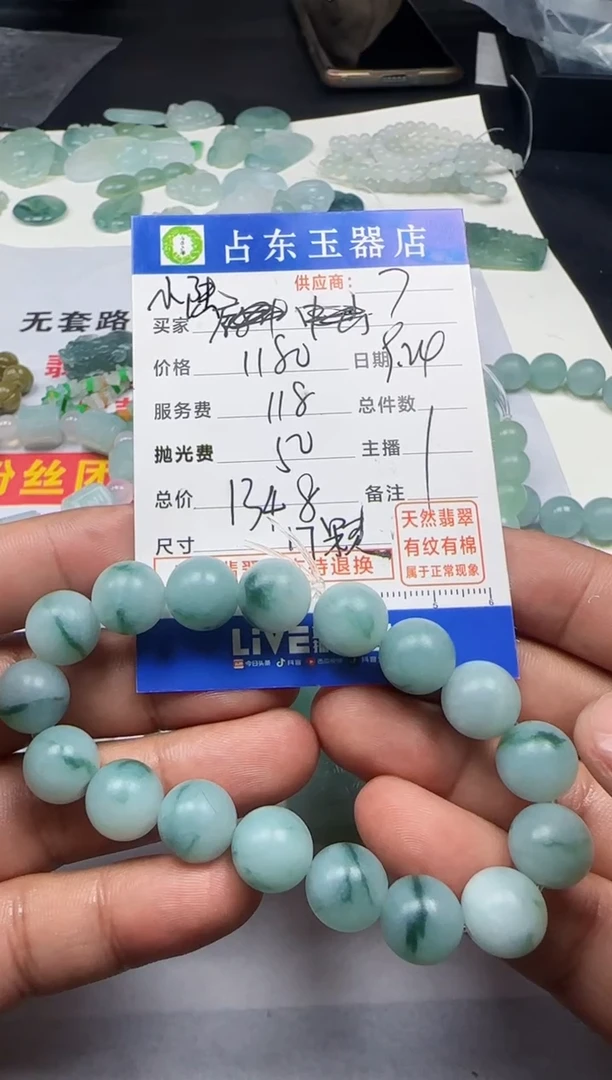 占东玉器店
供应商: 7
买家 小陆
价格 1180 日期 9.24
服务费 118 总件数
抛光费 50 主播
总价 1348 备注
尺寸 17颗
天然翡翠
有纹有棉
属于正常现象
持退换
LiVE
今日头条 抖音
无套路
粉丝团